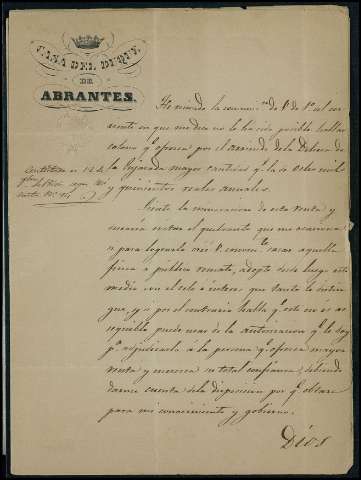 CASA DEL DUQUE
DE
ABRANTES.
He mirado la comun.on de V. de 1º al cor-
riente en que me dice no le ha sido posible hallar
colono qe ofrezca por el arriendo de la Dehesa de
la mayor cantidad qe la de ocho mil
y quinientos reales anuales.
Contestada en 12 de
Siento la minoracion de esta renta y
el quebranto que me ocasiona
y para lograrlo cree V. conven.te sacar aquella
finca á pública remate, adopte desde luego este
medio con el celo é interes que tanto le distin-
gue, y si por el contrario halla qe este no es a-
sequible puede usar de la autorizacion qe le doy
pa adjudicarla á la persona qe ofrezca mayor
renta y merezca su total confianza, debiendo
darme cuenta de la disposicion por qe obtare
para mi conocimiento y gobierno.
Dios